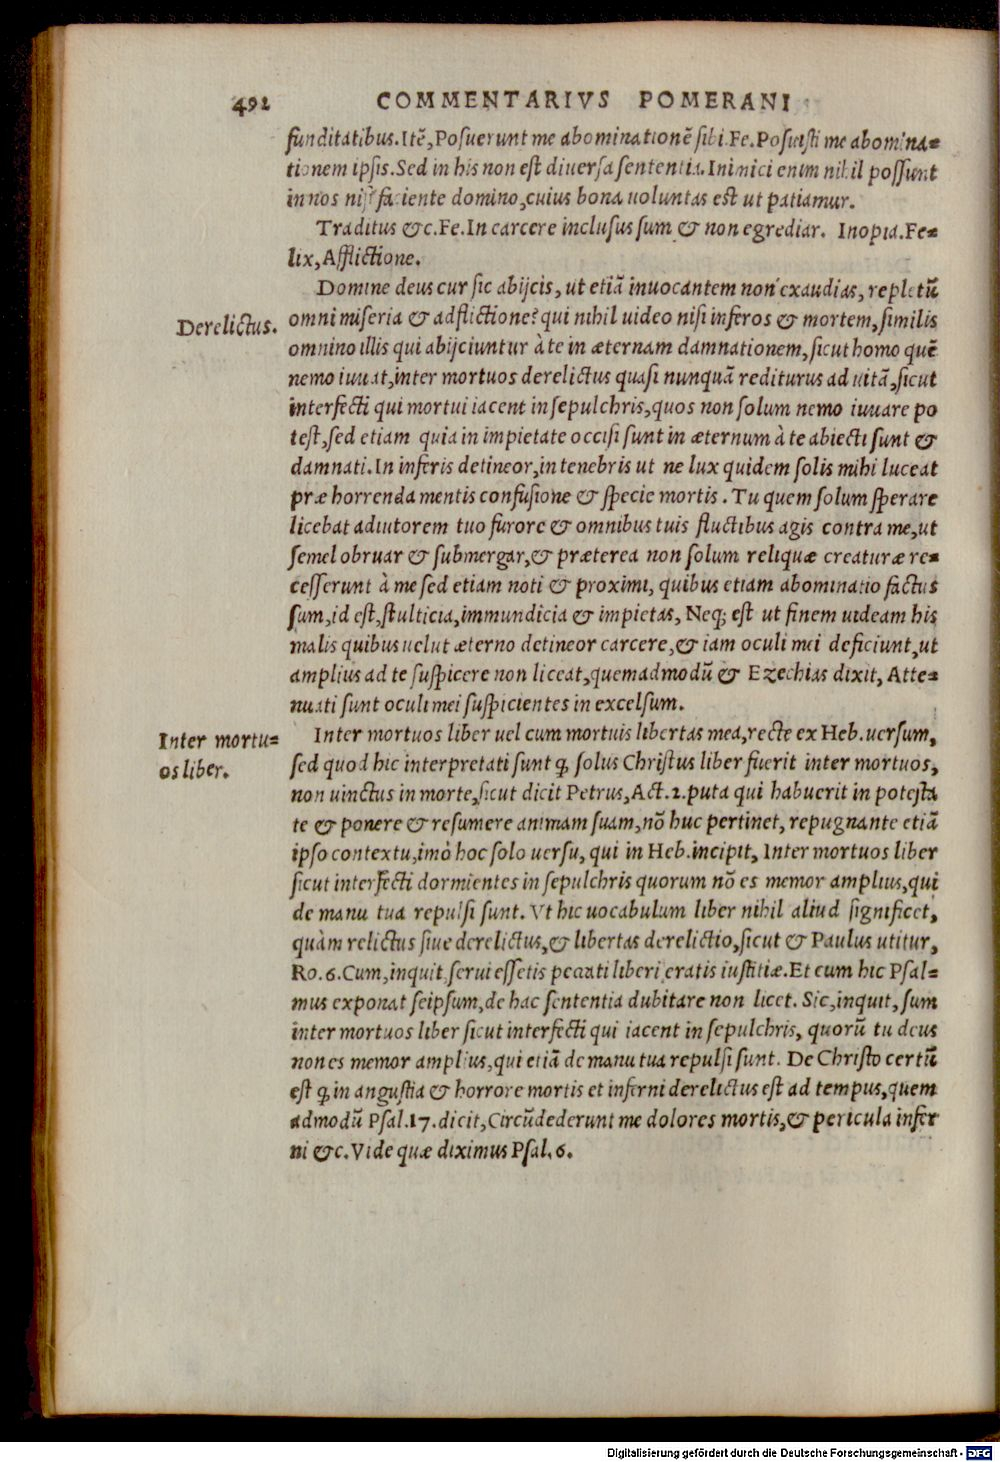 492 COMMENTARIVS POMERANI
funditatibus. Itē, Posuerunt me abominationē sibi. Fe. Posuisti me abomina=
tionem ipsis. Sed in his non est diuersa sententia. Inimici enim nihil possunt
in nos nisi faciente domino, cuius bona uoluntas est ut patiamur.
Traditus &c. Fe. In carcere inclusus sum & non egrediar. Inopia. Fe=
lix, Afflictione.
Domine deus cur sic abijcis, ut etiā inuocantem non exaudias, repletū
Derelictus.
omni miseria & adflictione? qui nihil uideo nisi inferos & mortem, similis
omnino illis qui abijciuntur à te in æternam damnationem, sicut homo quē
nemo iuuat, inter mortuos derelictus quasi nunquā rediturus ad uitā, sicut
interfecti qui mortui iacent in sepulchris, quos non solum nemo iuuare po
test, sed etiam quia in impietate occisi sunt in æternum à te abiecti sunt &
damnati. In inferis detineor, in tenebris ut ne lux quidem solis mihi luceat
præ horrenda mentis confusione & specie mortis. Tu quem solum sperare
licebat adiutorem tuo furore & omnibus tuis fluctibus agis contra me, ut
semel obruar & submergar, & præterea non solum reliquæ creaturæ re=
cesserunt à me sed etiam noti & proximi, quibus etiam abominatio factus
sum, id est, stulticia, immundicia & impietas, Neq; est ut finem uideam his
malis quibus uelut æterno detineor carcere, & iam oculi mei deficiunt, ut
amplius ad te suspicere non liceat, quemadmodū & Ezechias dixit, Atte=
nuati sunt oculi mei suspicientes in excelsum.
Inter mortu=
os liber.
Inter mortuos liber uel cum mortuis libertas mea, recte ex Heb. uersum,
sed quod hic interpretati sunt ꝙ solus Christus liber fuerit inter mortuos,
non uinctus in morte, sicut dicit Petrus, Act. 2. puta qui habuerit in potesta
te & ponere & resumere animam suam, nō huc pertinet, repugnante etiā
ipso contextu, imò hoc solo uersu, qui in Heb. incipit, Inter mortuos liber
sicut interfecti dormientes in sepulchris quorum nō es memor amplius, qui
de manu tua repulsi sunt. Vt hic uocabulum liber nihil aliud significet,
quàm relictus siue derelictus, & libertas derelictio, sicut & Paulus utitur,
Ro. 6. Cum, inquit, serui essetis peccati liberi eratis iustitiæ. Et cum hic Psal=
mus exponat seipsum, de hac sententia dubitare non licet. Sic, inquit, sum
inter mortuos liber sicut interfecti qui iacent in sepulchris, quorū tu deus
non es memor amplius, qui etiā de manu tua repulsi sunt. De Christo certū
est ꝙ in angustia & horrore mortis et inferni derelictus est ad tempus, quem
admodū Psal. 17. dicit, Circūdederunt me dolores mortis, & pericula infer
ni &c. Vide quæ diximus Psal. 6.
Digitalisierung gefördert durch die Deutsche Forschungsgemeinschaft - DFG